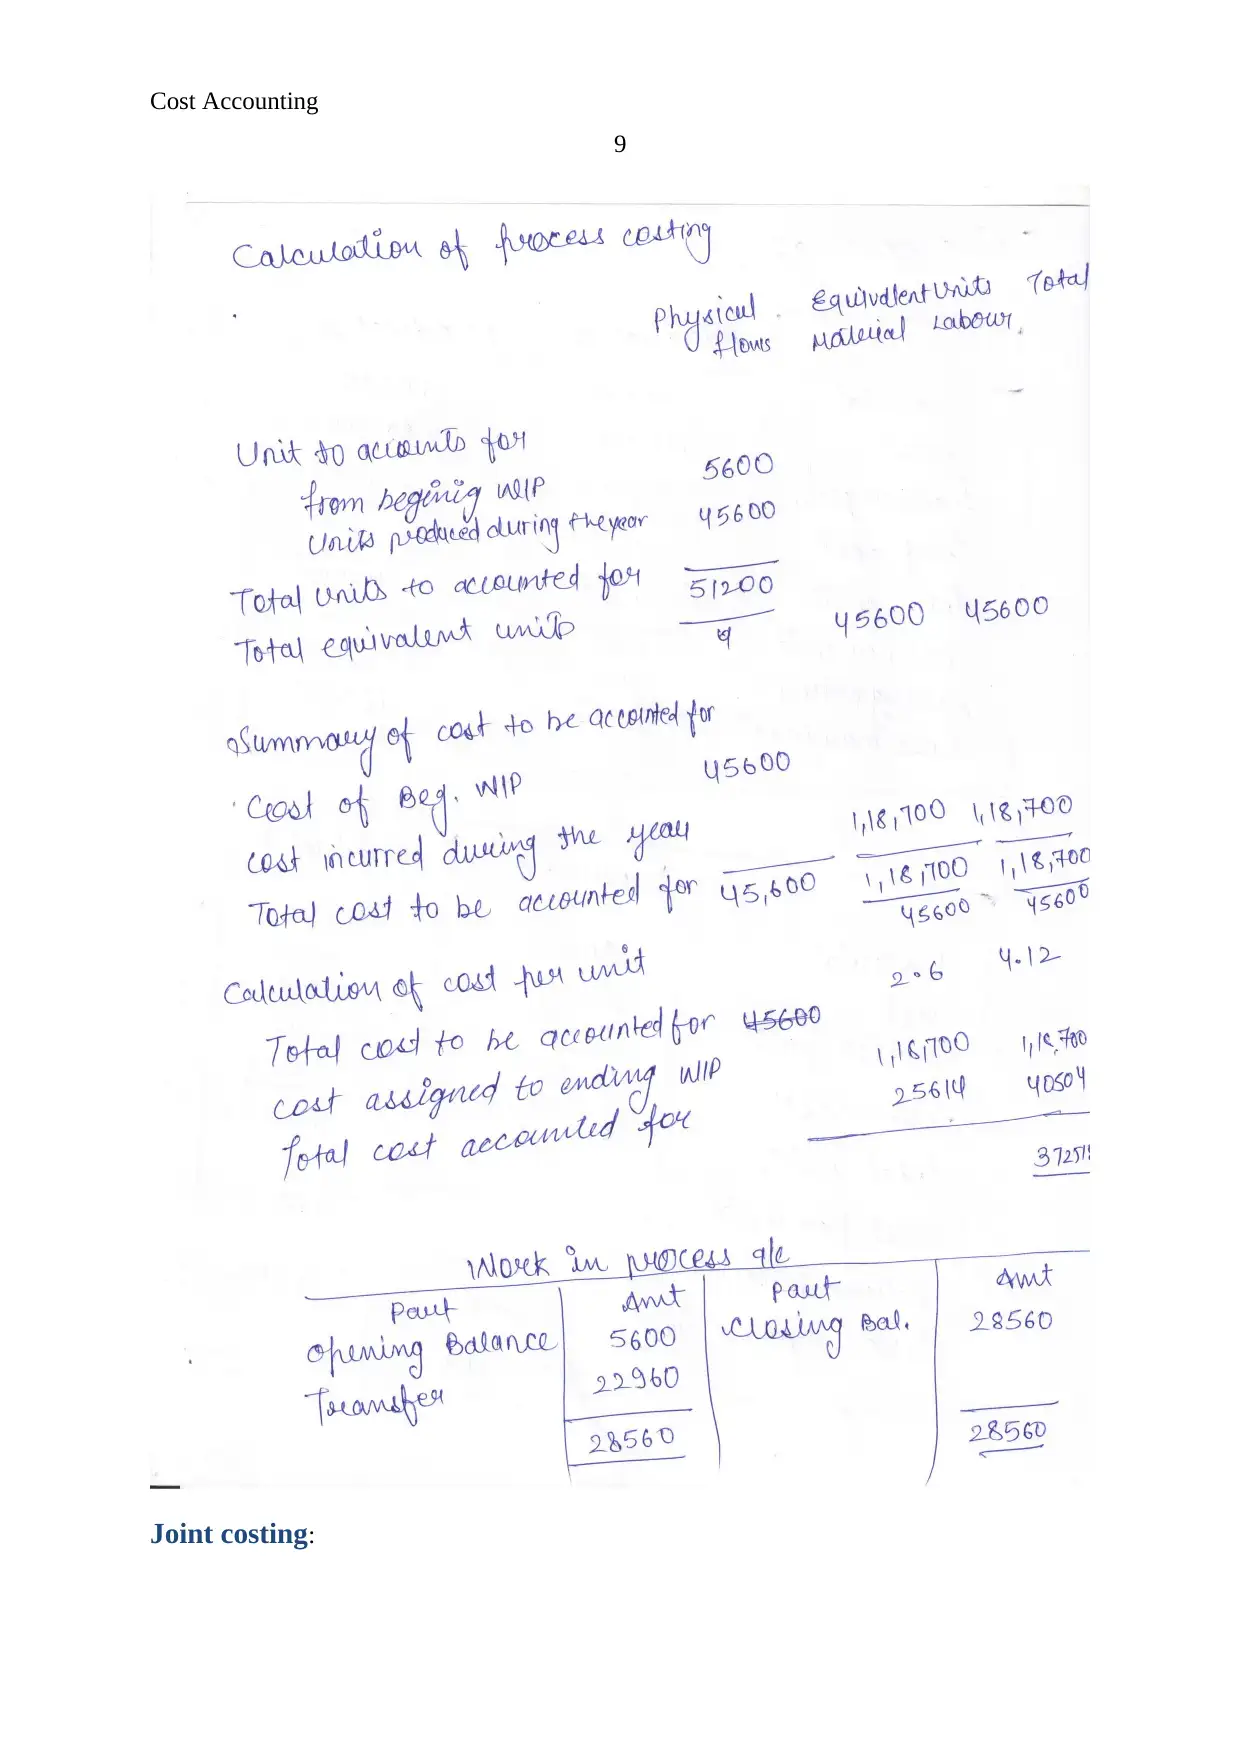 Cost Accounting
9
Calculation of process costing
Physical Equivalent Units Total
flows Material Labour
Unit to accounts for
from begining WIP 5600
Units produced during the year 45600
Total units to accounted for 51200
Total equivalent units 45600 45600
Summary of cost to be accounted for
Cost of Beg. WIP 45600
cost incurred during the year 1,18,700 1,18,700
Total cost to be accounted for 45,600 1,18,700 1,18,700
45600 45600
Calculation of cost per unit 2.6 4.12
Total cost to be accounted for 45600 1,18,700 1,18,700
cost assigned to ending WIP 25614 40504
Total cost accounted for
Work in process a/c
Part Amt Part Amt
opening Balance 5600 Closing Bal. 28560
Transfer 22960
28560 28560
Joint costing: